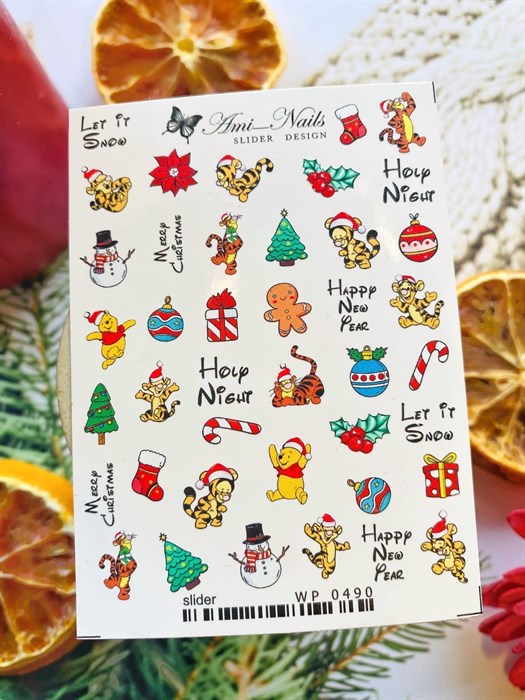 Let it
Snow
Ami_Nails
SLIDER DESIGN
Holy
Night
Merry
Christmas
Happy
New
Year
Holy
Night
Let it
Snow
Merry
Christmas
Happy
New
Year
slider
WP 0490